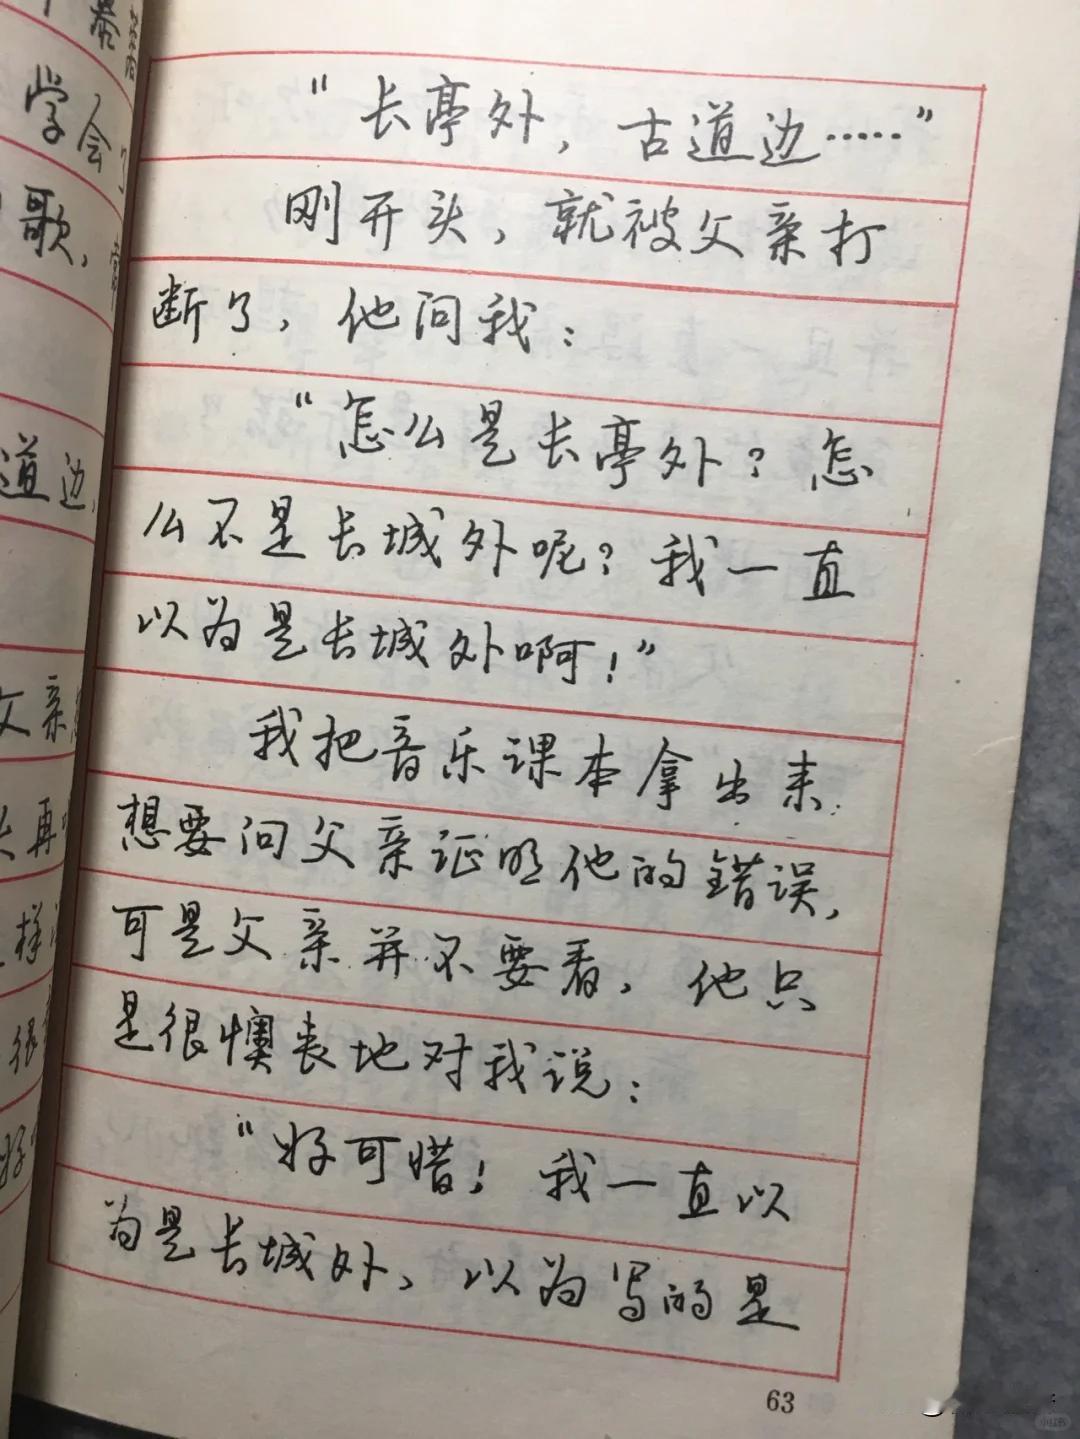 暴
学会了
歌,
道边,
父亲
再
样
很
好
"长亭外,古道边……"
刚开头,就被父亲打
断了,他问我:
"怎么是长亭外?怎
么不是长城外呢?我一直
以为是长城外啊!"
我把音乐课本拿出来
想要问父亲证明他的错误,
可是父亲并不要看,他只
是很懊丧地对我说:
"好可惜!我一直以
为是长城外,以为写的是
63
小红书